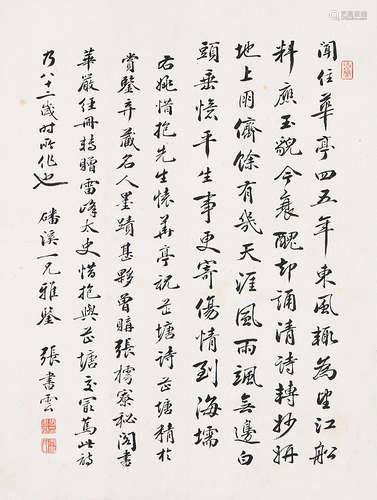 聞住華亭四五年東風輒為望江船
料應玉貌今衰醜却誦清詩轉妙妍
地上朋儕餘有幾天涯風雨颯無邊白
頭重憶平生事更寄傷情到海壖
右姚惜抱先生懷華亭祝芷塘詩芷塘精於
賞鑒弆藏名人墨蹟甚夥曾購張樗寮秘閣書
華嚴經冊轉贈雷峰太史惜抱與芷塘交最篤此詩
乃八十二歲時所作也 磻溪一兄雅鑒 張書雲